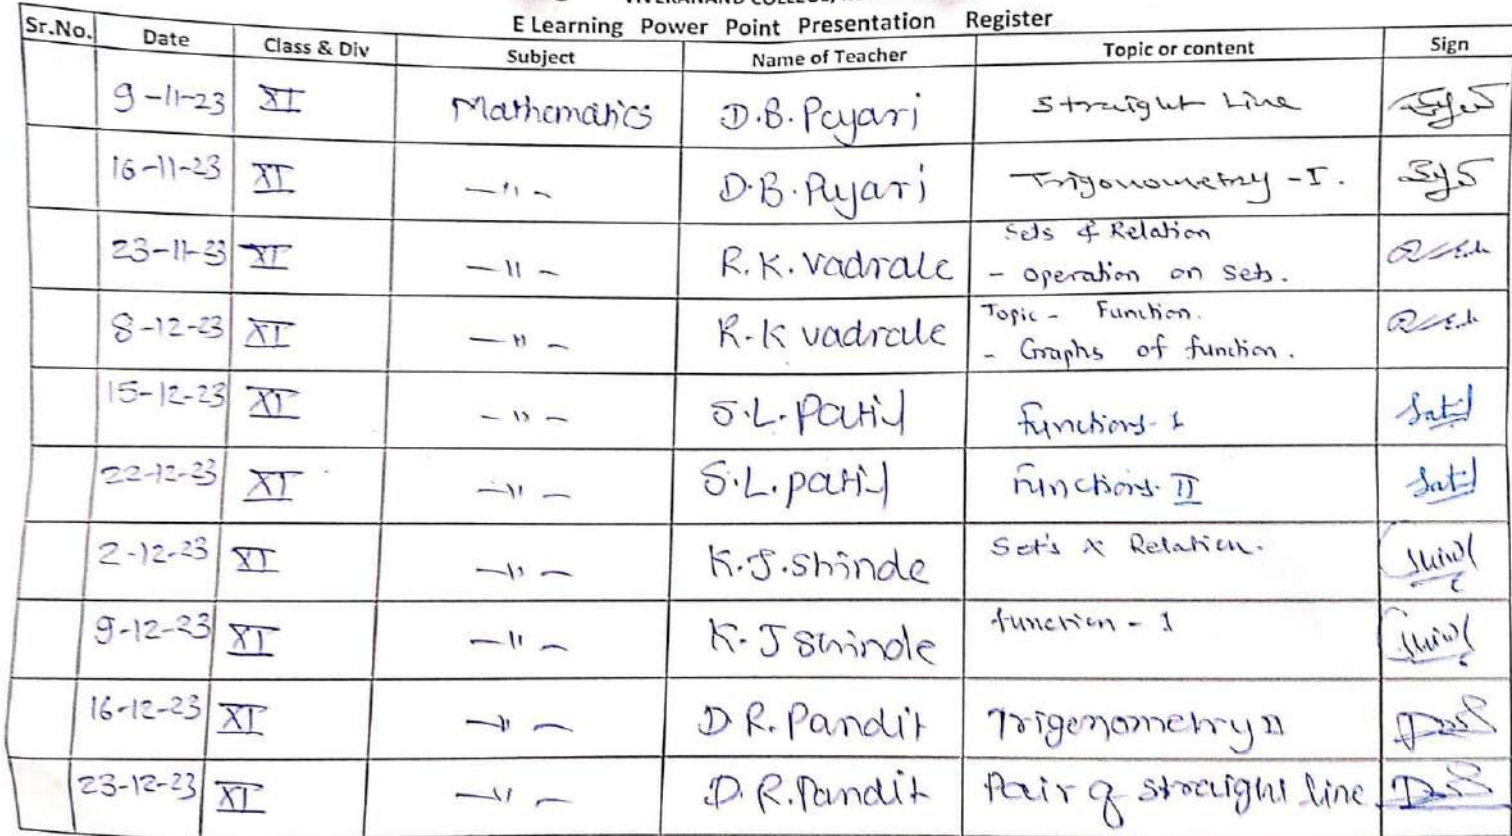 E Learning Power Point Presentation Register
Sr.No. Date Class & Div Subject Name of Teacher Topic or content Sign
9-11-23 XI Mathematics D.B. Payari Straight Line
16-11-23 XI —"— D.B. Payari Trigonometry - I.
23-11-23 XI —"— R.K. Vadrale Sets & Relation
- operation on sets.
8-12-23 XI —"— R.K Vadrale Topic - Function.
- Graphs of function.
15-12-23 XI —"— S.L. Patil functions-1
22-12-23 XI —"— S.L. patil Functions-II
2-12-23 XI —"— K.J. Shinde Set's & Relation.
9-12-23 XI —"— K.J Shinde function - 1
16-12-23 XI —"— D R. Pandit Trigenometry II
23-12-23 XI —"— D. R. Pandit Pair of straight line